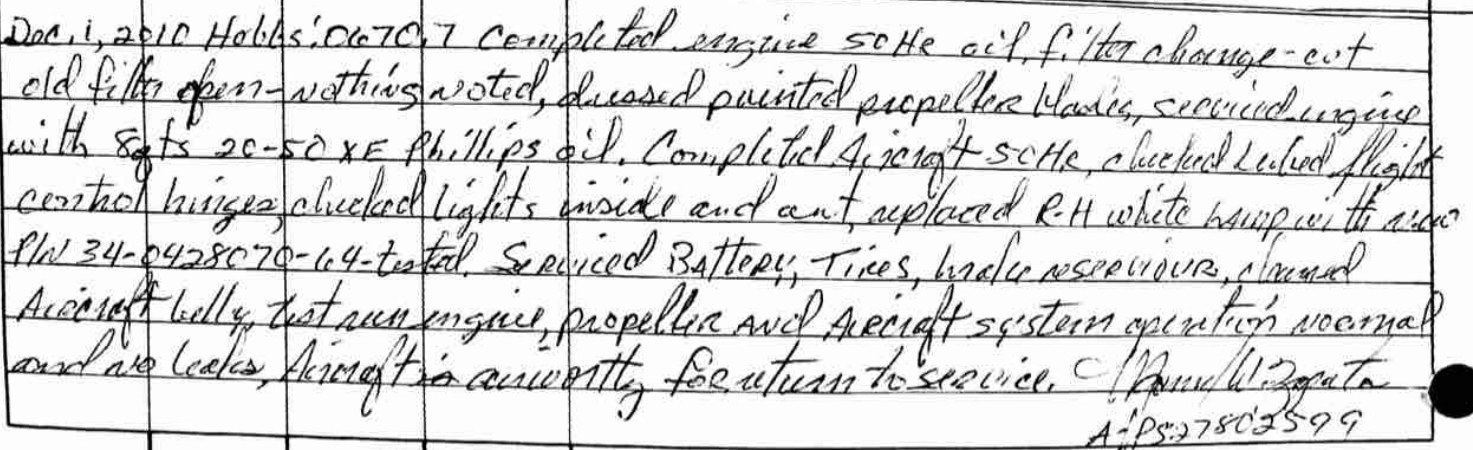 Dec. 1, 2010 Hobbs: 0670.7 Completed engine 50HR oil, filter change-cut
old filter open-nothing noted, dressed painted propeller blades, serviced engine
with 8qts 20-50 XE Phillips oil. Completed Aircraft 50HR, checked Lubed flight
control hinges, checked lights inside and out, replaced R-H white lamp with new
P/N 34-0428070-64-tested. Serviced Battery, Tires, brake reserviour, cleaned
Aircraft belly, test run engine, propeller and Aircraft system operation normal
and no leaks, Aircraft is airworthy for return to service. W. Zapata
A&P 527802599